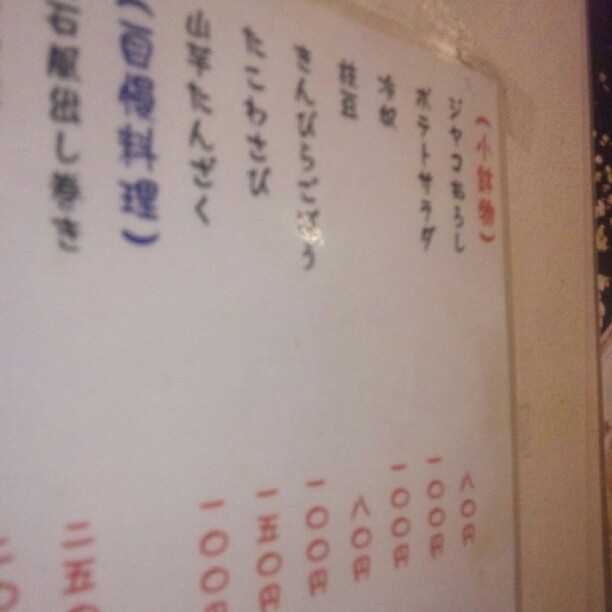 (小鉢物)
ジャコおろし 八〇円
ポテトサラダ 一〇〇円
冷奴 一〇〇円
枝豆 八〇円
きんぴらごぼう 一〇〇円
たこわさび 一五〇円
山芋たんざく 一〇〇円
(自慢料理)
出し巻き 二五〇